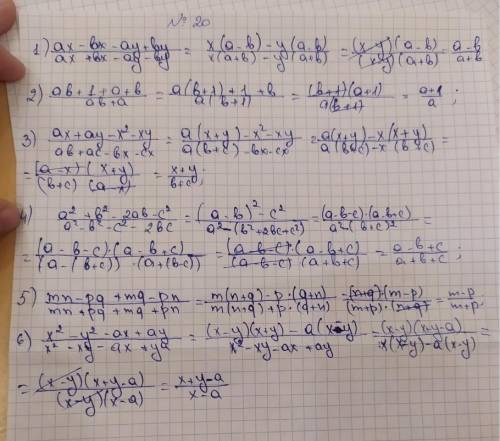 № 20
1) (ax - bx - ay + by)/(ax + bx - ay - by) = (x(a-b) - y(a-b))/(x(a+b) - y(a+b)) = ((x-y)(a-b))/((x-y)(a+b)) = (a-b)/(a+b)
2) (ab + 1 + a + b)/(ab + a) = (a(b+1) + 1 + b)/(a(b+1)) = ((b+1)(a+1))/(a(b+1)) = (a+1)/a ;
3) (ax + ay - x² - xy)/(ab + ac - bx - cx) = (a(x+y) - x² - xy)/(a(b+c) - bx - cx) = (a(x+y) - x(x+y))/(a(b+c) - x(b+c)) =
= ((a-x)(x+y))/((b+c)(a-x)) = (x+y)/(b+c);
4) (a² + b² - 2ab - c²)/(a² - b² - c² - 2bc) = ((a-b)² - c²)/(a² - (b² + 2bc + c²)) = ((a-b-c)·(a-b+c))/(a² - (b+c)²) =
= ((a-b-c)·(a-b+c))/((a-(b+c))·(a+(b+c))) = ((a-b-c)·(a-b+c))/((a-b-c)·(a+b+c)) = (a-b+c)/(a+b+c) ;
5) (mn - pq + mq - pn)/(mn + pq + mq + pn) = (m(n+q) - p·(q+n))/(m(n+q) + p·(q+n)) = ((n+q)·(m-p))/((m+p)·(n+q)) = (m-p)/(m+p).
6) (x² - y² - ax + ay)/(x² - xy - ax + ya) = ((x-y)(x+y) - a(x-y))/(x² - xy - ax + ay) = ((x-y)(x+y-a))/(x(x-y) - a(x-y)) =
= ((x-y)(x+y-a))/((x-y)(x-a)) = (x+y-a)/(x-a)